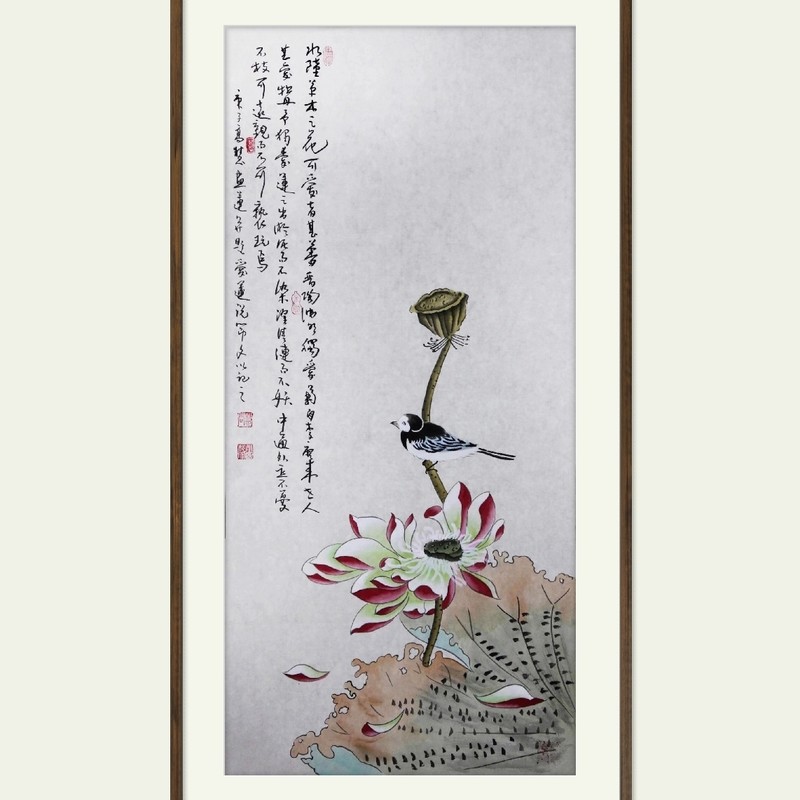 水陸草木之花可愛者甚蕃晉陶淵明獨愛菊自李唐來世人
甚愛牡丹予獨愛蓮之出淤泥而不染濯清漣而不妖中通外直不蔓
不枝可遠觀而不可褻玩焉
庚子高慧畫蓮并題愛蓮說節文以記之